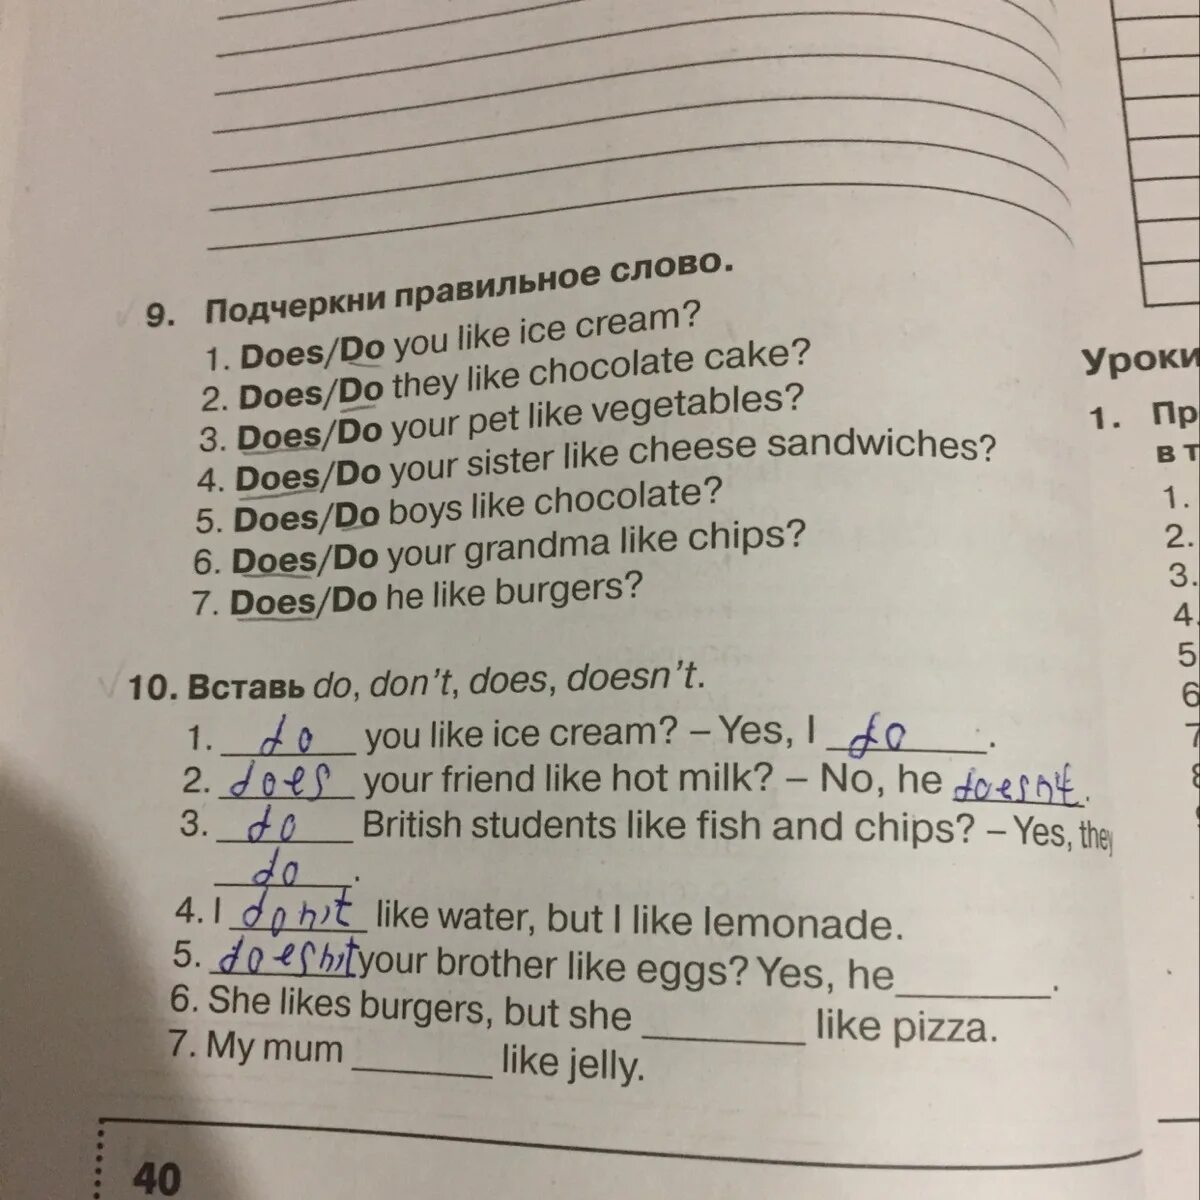 9. Подчеркни правильное слово.
1. Does/Do you like ice cream?
2. Does/Do they like chocolate cake?
3. Does/Do your pet like vegetables?
4. Does/Do your sister like cheese sandwiches?
5. Does/Do boys like chocolate?
6. Does/Do your grandma like chips?
7. Does/Do he like burgers?
10. Вставь do, don't, does, doesn't.
1. do you like ice cream? – Yes, I do.
2. does your friend like hot milk? – No, he doesn't.
3. do British students like fish and chips? – Yes, they
do.
4. I don't like water, but I like lemonade.
5. doesn't your brother like eggs? Yes, he ________.
6. She likes burgers, but she ________ like pizza.
7. My mum ________ like jelly.
40
Уроки
1. Пр
в т
1.
2.
3.
4.
5
6
7
8